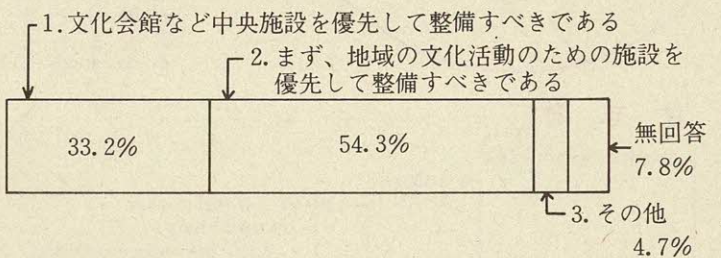 1.文化会館など中央施設を優先して整備すべきである
2.まず、地域の文化活動のための施設を
優先して整備すべきである
33.2%
54.3%
無回答
7.8%
3.その他
4.7%